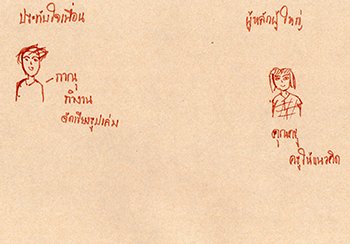 ประทับใจเพื่อน
ภาณุ
ทำงาน
จัดเรียงรูปเล่ม
ผู้หลักผู้ใหญ่
คุณครู
ครูให้แนวคิด